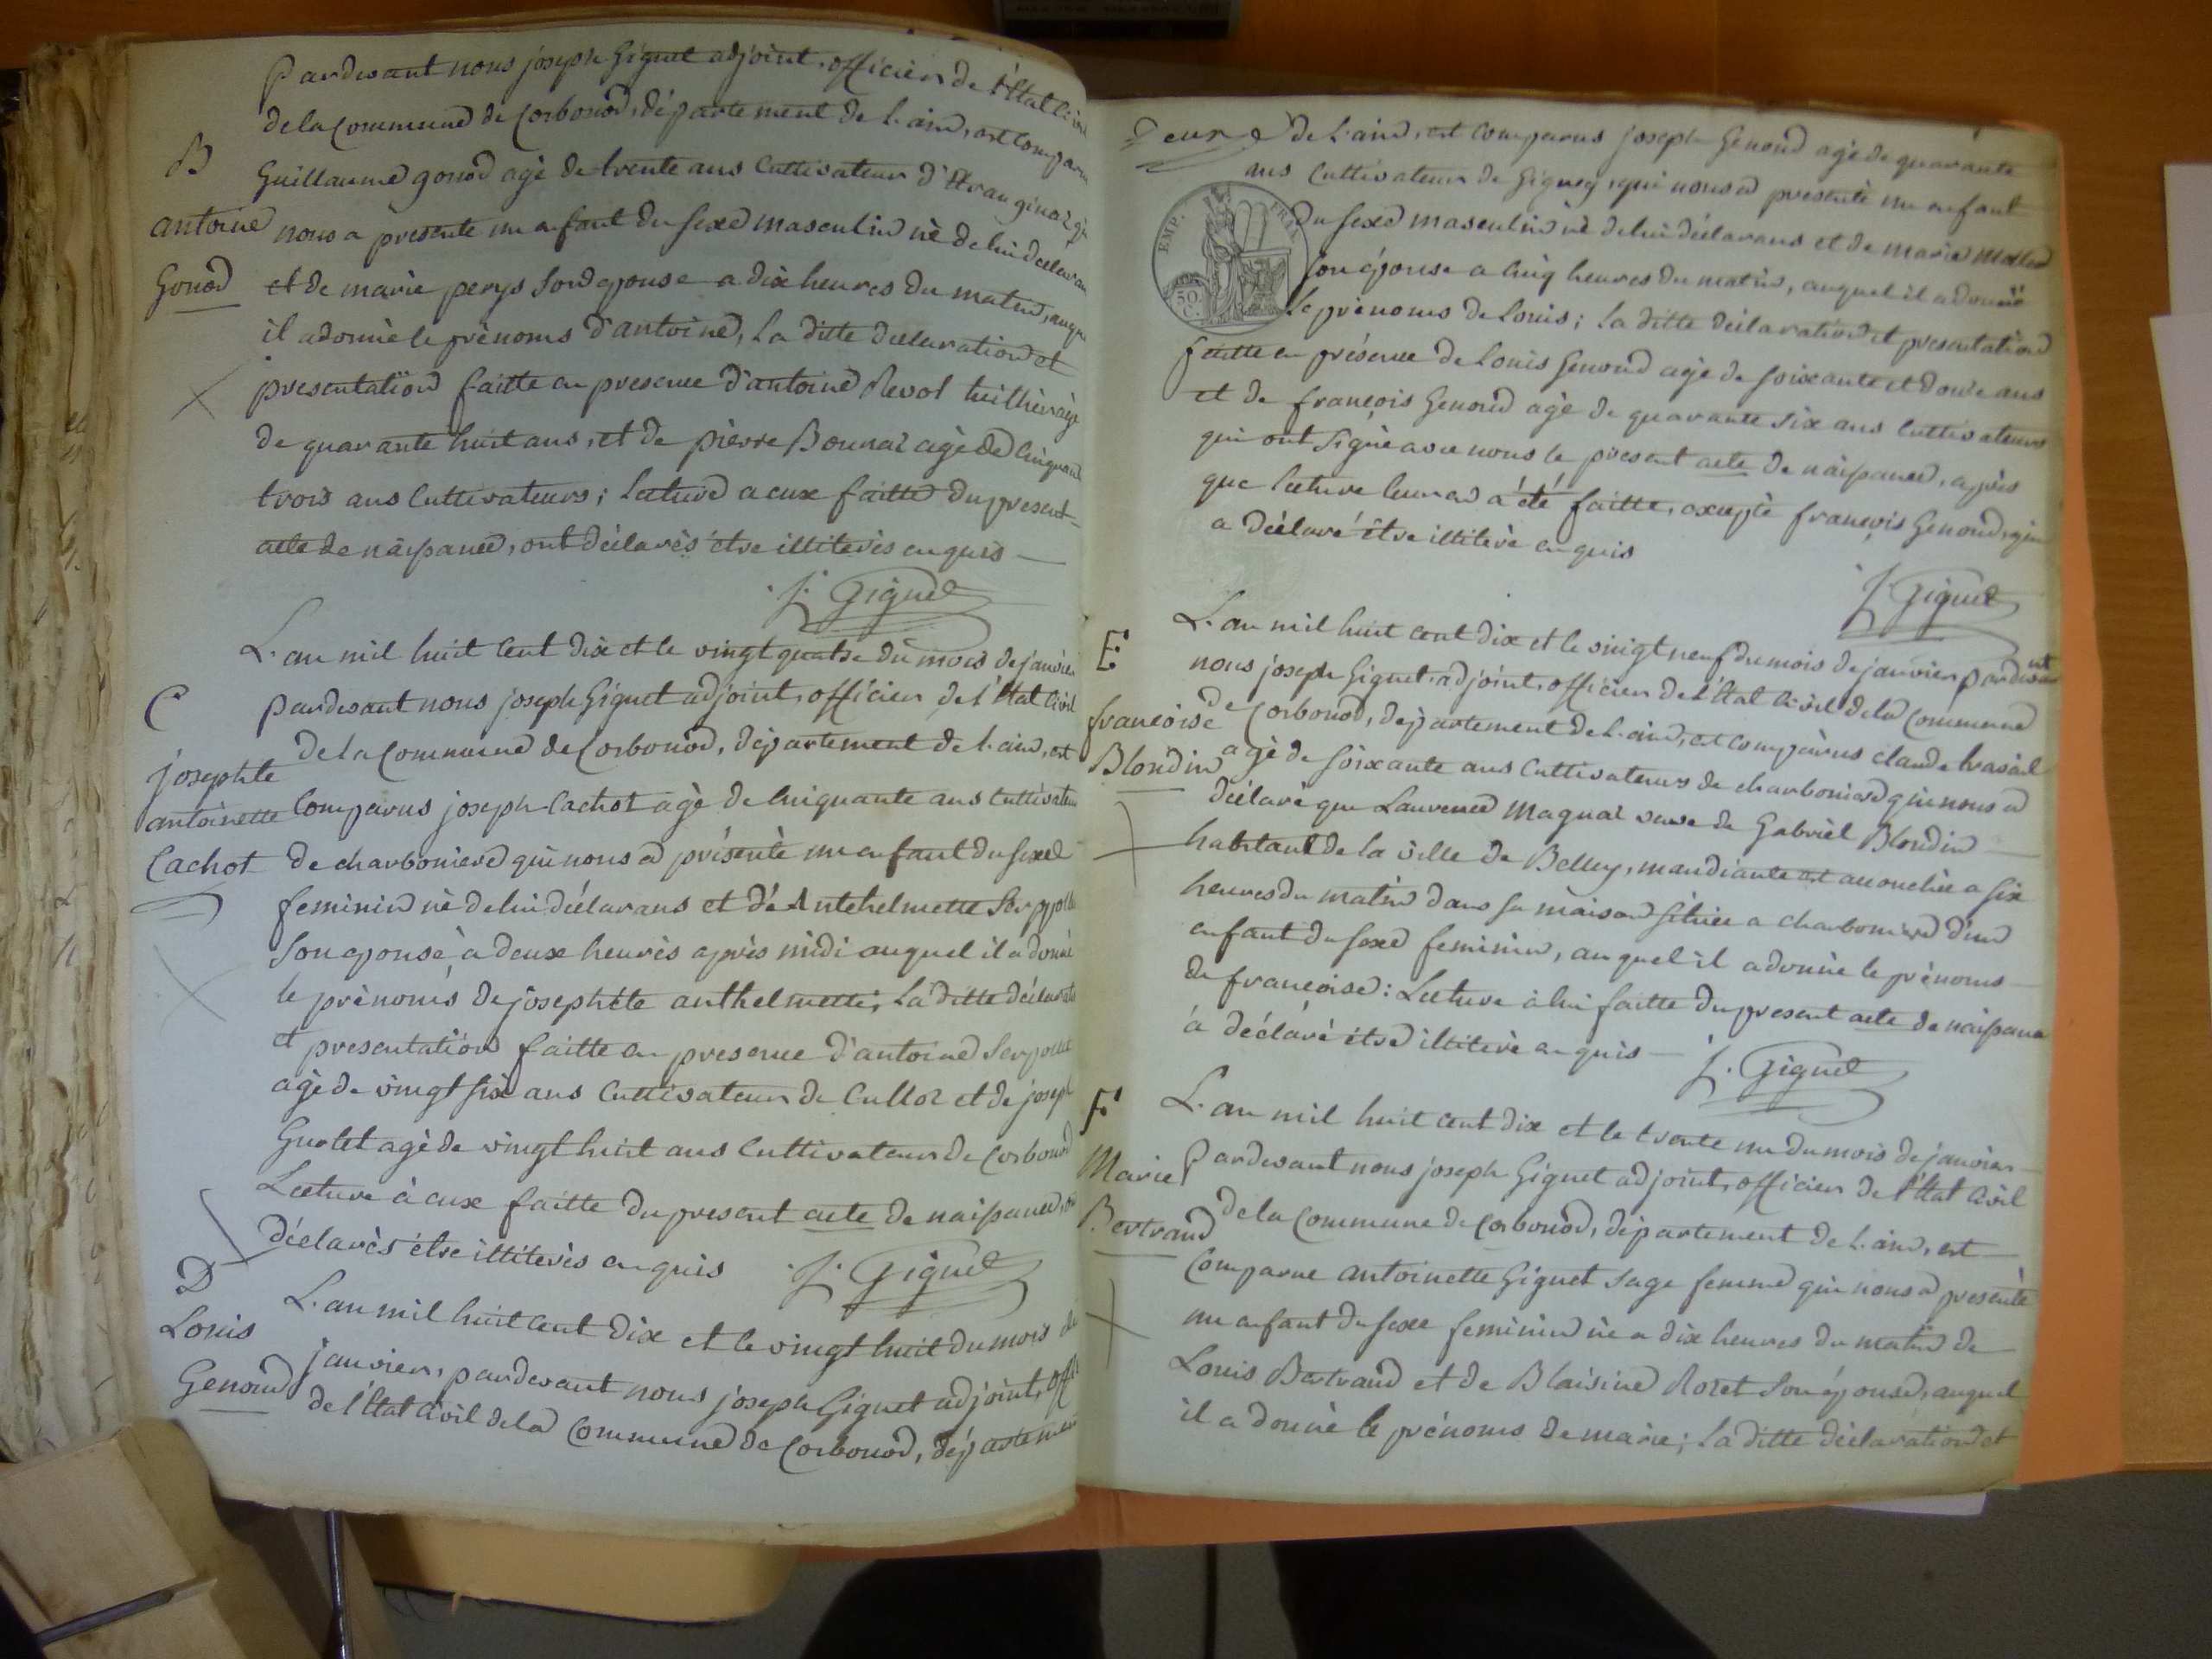 Pardevant nous joseph Giguet adjoint, officier de l'Etat Civil
de la Commune de Corbonod, département de L'ain, est Comparu
B
Guillaume gonod agè de trente ans Cultivateur d'Etranginaz qui
antoine
nous a presente un enfant du sexe masculin nè de lui declarant
Gonod
et de marie perys son epouse a dix heures du matin, auquel
il a donnè le prènoms d'antoine, La ditte declaration et
presentation faitte en presence d'antoine Revol agè
de quarante huit ans, et de pierre Bonnaz agè de Cinquante
trois ans Cultivateurs; Lecture a eux faitte du present
acte de naissance, ont déclarès être illiterès enquis
J. Giguet
L'an mil huit Cent dix et le vingt quatre du mois de janvier
C
pardevant nous joseph Giguet adjoint, officier de l'Etat Civil
de la Commune de Corbonod, département de L'ain, est
josephte
Comparus joseph Cachot agè de Cinquante ans Cultivateur
antoinette
Cachot
de charboniere qui nous a présentè un enfant du sexe
feminin nè de lui déclarans et d'Antelmette Serpollet
son epouse à deux heurès après midi auquel il a donnè
le prènoms de josephte anthelmette; La ditte déclaration
et presentation faitte en presence d'antoine Serpollet
agè de vingt six ans Cultivateur de Culloz et de joseph
Guolet agè de vingt huit ans Cultivateur de Corbonod
Lecture à eux faitte du present acte de naissance, ont
déclarès être illiterès enquis
J. Giguet
D
L'an mil huit Cent dix et le vingt huit du mois de
Louis
janvier, pardevant nous joseph Giguet adjoint, officier
Genoud
de l'Etat Civil de la Commune de Corbonod, département
de L'ain, est Comparus joseph Genoud agè de quarante
ans Cultivateur de Gignez, qui nous a presentè un enfant
EMP. FRAN.
50 C.
du sexe masculin nè de lui déclarans et de marie
son épouse a Cinq heures du matin, auquel il a donnè
le prènoms de Louis; La ditte déclaration et presentation
faitte en présence de Louis Genoud agè de soixante et douze ans
et de françois Genoud agè de quarante six ans Cultivateurs
qui ont signè avec nous le present acte de naissance, après
que lecture leur en a été faitte, exceptè françois Genoud, qui
a déclaré être illiterè enquis
J. Giguet
L'an mil huit cent dix et le vingt neuf du mois de janvier pardevant
E
nous joseph Giguet, adjoint, officier de L'Etat Civil de la Commune
francoise
de Corbonod, département de L'ain, est Comparus claude
Blondin
agè de soixante ans Cultivateurs de charboniere qui nous a
déclaré que Laurence Magnaz veuve de Gabriel Blondin
habitant de la ville de Belley, mandiante est accouchée a six
heures du matin dans sa maison située a charboniere d'un
enfant du sexe feminin, auquel il a donnè le prènoms
de francoise: Lecture à lui faitte du present acte de naissance
a déclaré être illiterè enquis
J. Giguet
F
L'an mil huit cent dix et le trente un du mois de janvier
Marie
Pardevant nous joseph Giguet adjoint, officier de l'Etat Civil
Bertrand
de la Commune de Corbonod, département de L'ain, est
Comparue antoinette Giguet sage femme qui nous a presentè
un enfant du sexe feminin nè a dix heures du matin de
Louis Bertrand et de Blaisine Rozet son épouse, auquel
il a donnè le prénoms de marie; La ditte déclaration et